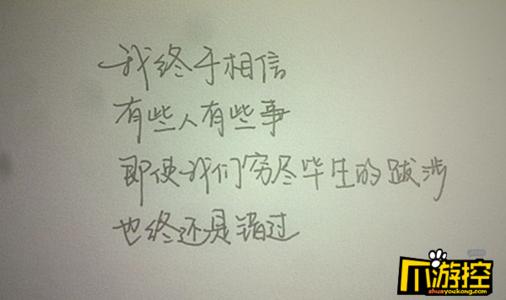 我终于相信
有些人有些事
即使我们穷尽毕生的跋涉
也终还是错过
爪游控
zhuayoukong.com